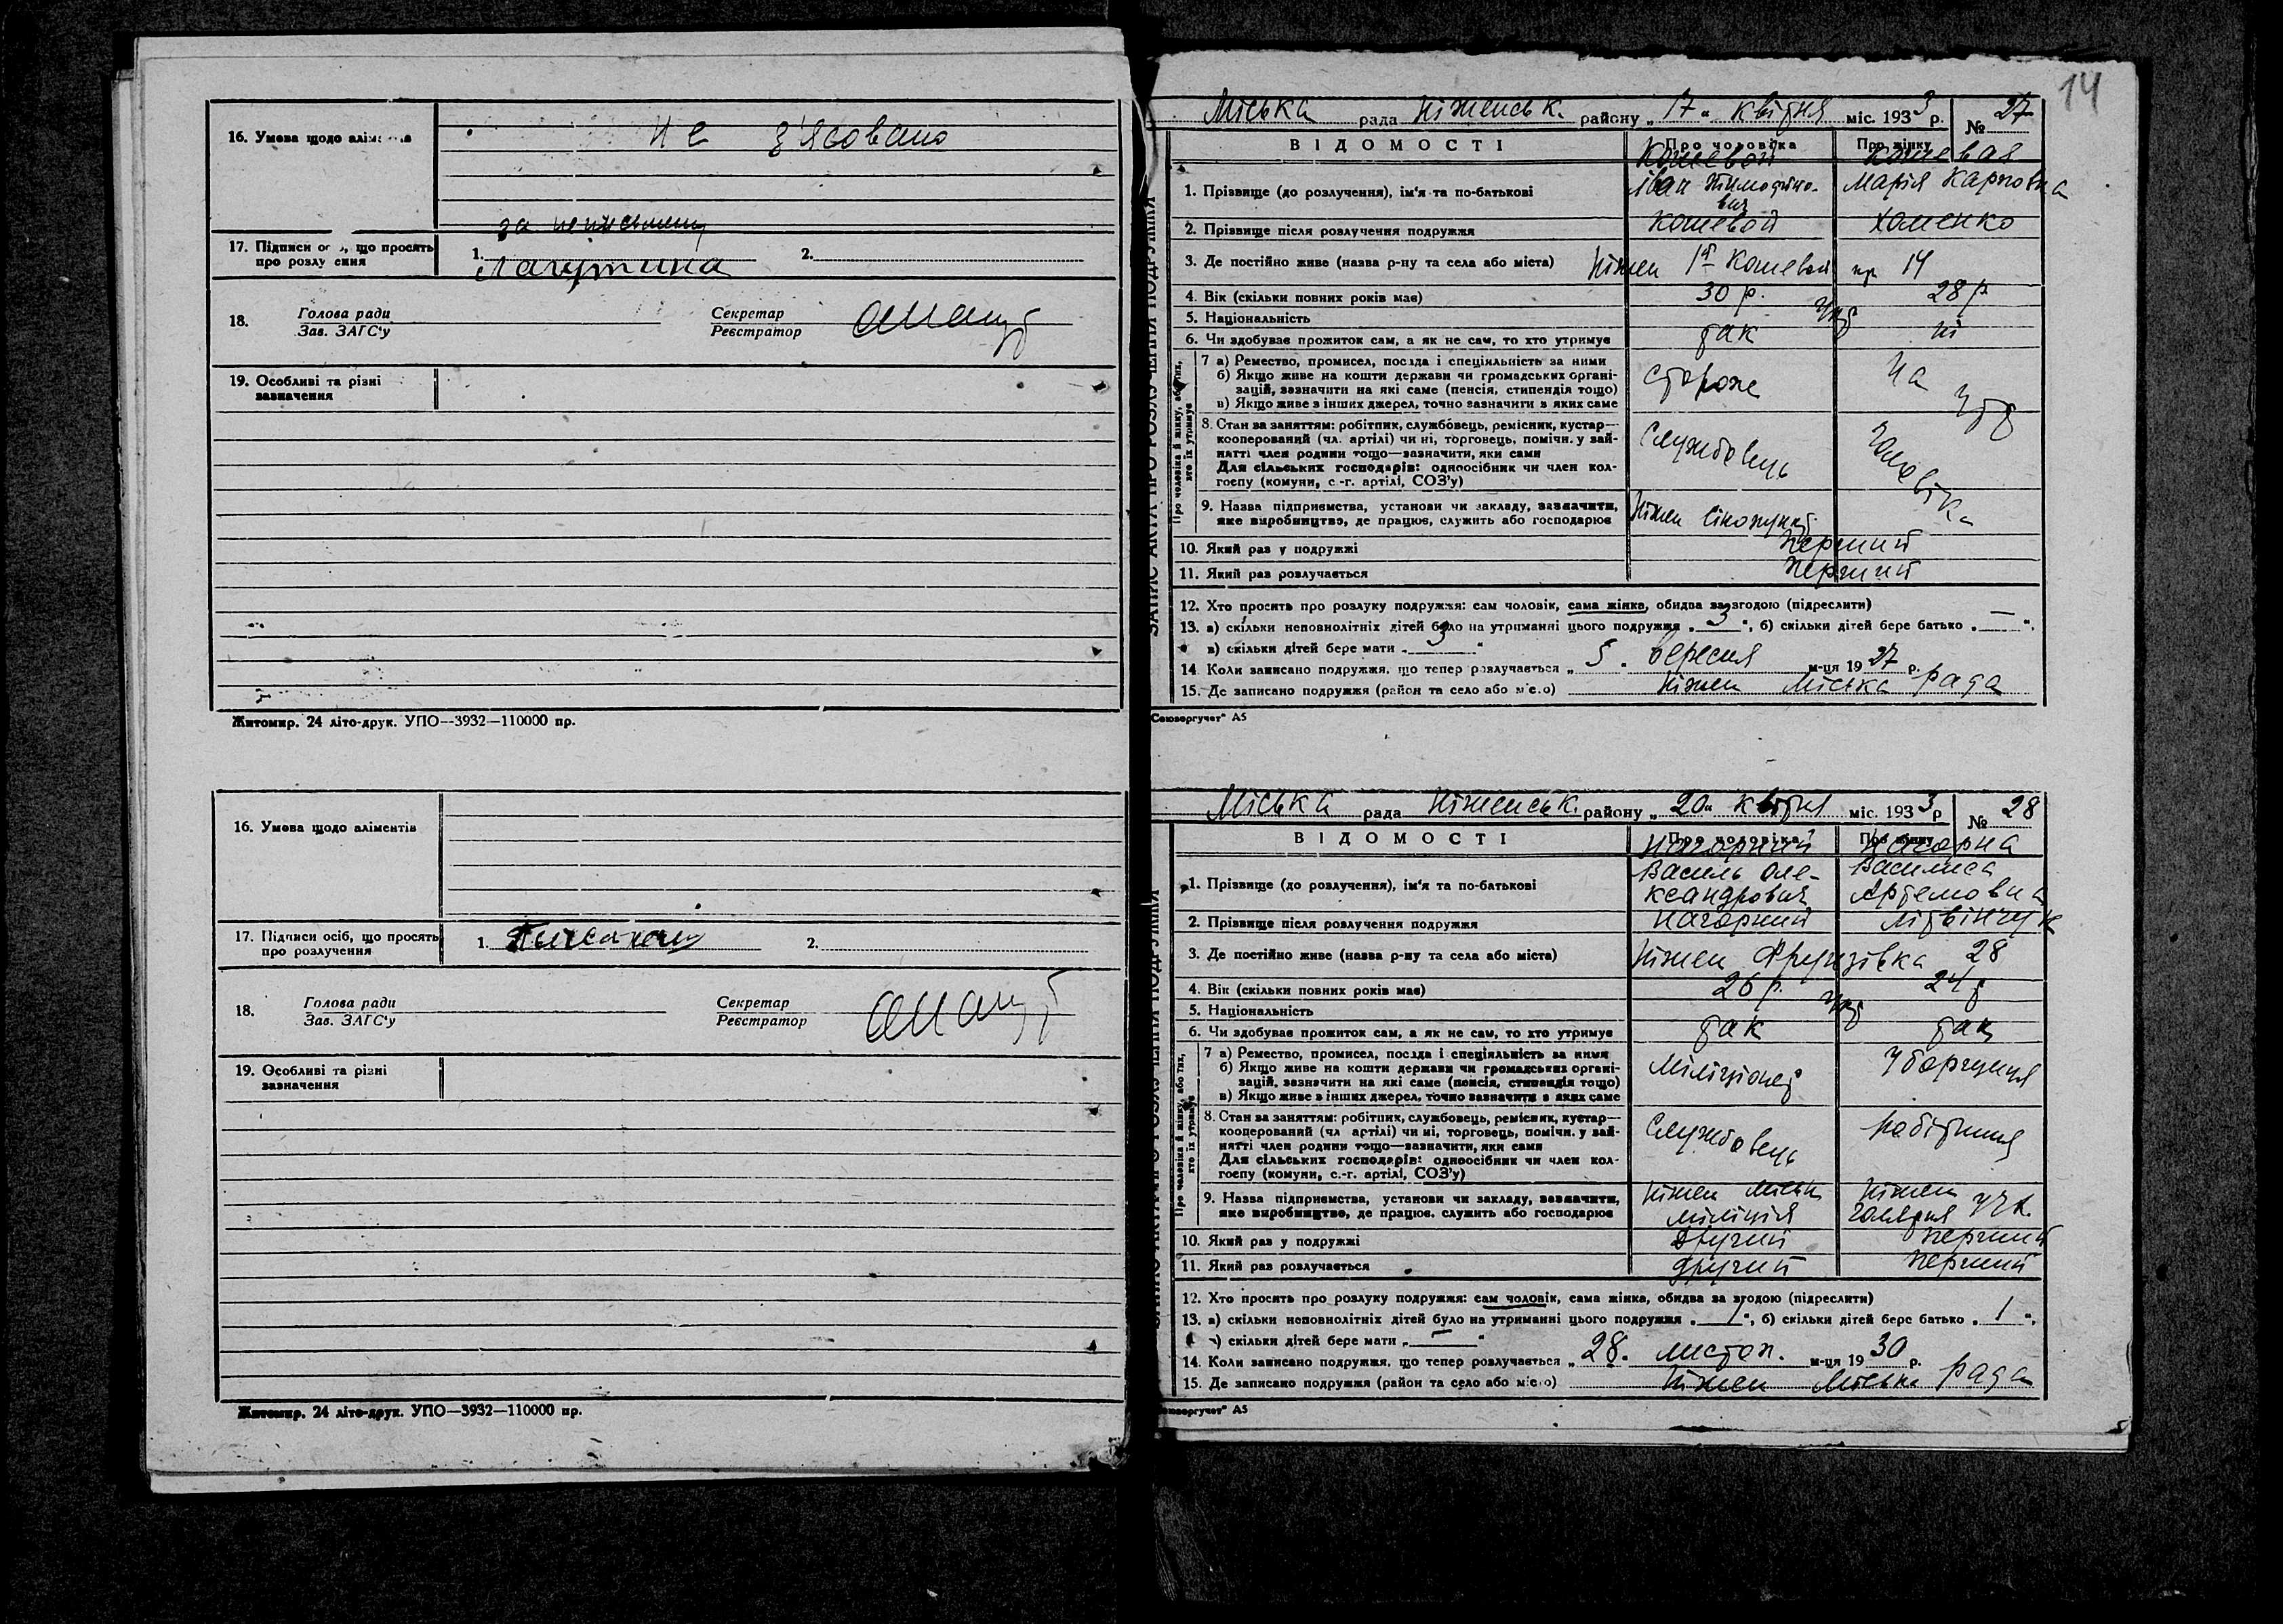 16. Умова щодо аліментів
не з'ясовано
17. Підписи осіб, що просять про розлучення
за неписьмену
1. Лагутина 2.
18. Голова ради
Зав. ЗАГС'у
Секретар
Реєстратор
19. Особливі та різні зазначення
Житомир. 24 літо-друк. УПО—3932—110000 пр.
16. Умова щодо аліментів
17. Підписи осіб, що просять про розлучення
1. 2.
18. Голова ради
Зав. ЗАГС'у
Секретар
Реєстратор
19. Особливі та різні зазначення
Житомир. 24 літо-друк. УПО—3932—110000 пр.
14
Міська рада Ніженськ. району „17" квітня міс. 1933 р. № 27
ВІДОМОСТІ Про чоловіка Про жінку
1. Прізвище (до розлучення), ім'я та по-батькові Кошевой Іван Тимофійович Кошевая Марія Карповна
2. Прізвище після розлучення подружжя Кошевой Хоменко
3. Де постійно живе (назва р-ну та села або міста) Ніжен 1й Кошевой пр 14
4. Вік (скільки повних років має) 30 р. 28 р
5. Національність Укр
6. Чи здобуває прожиток сам, а як не сам, то хто утримує так ні
Про чоловіка й жінку, або тих, хто їх утримує
7 а) Ремество, промисел, посада і спеціяльність за ними
б) Якщо живе на кошти держави чи громадських організацій, зазначити на які саме (пенсія, стипендія тощо)
в) Якщо живе з інших джерел, точно зазначити з яких саме
сторож На утр
8. Стан за заняттям: робітник, службовець, ремісник, кустар—
кооперований (чл. артілі) чи ні, торговець, помічн. у занятті член родини тощо—зазначити, яки саме
Для сільських господарів: одноосібник чи член колгоспу (комуни, с.-г. артілі, СОЗ'у)
Службовець чоловіка
9. Назва підприємства, установи чи закладу, зазначити,
яке виробництво, де працює, служить або господарює
Ніжен Сінопункт
10. Який раз у подружжі перший
11. Який раз розлучається перший
12. Хто просить про розлуку подружжя: сам чоловік, сама жінка, обидва за згодою (підреслити)
13. а) скільки неповнолітніх дітей було на утриманні цього подружжя „3", б) скільки дітей бере батько „—",
в) скільки дітей бере мати „3"
14. Коли записано подружжя, що тепер розлучається „5. вересня м-ця 1927 р.
15. Де записано подружжя (район та село або місто) Ніжен Міська рада
"Союзоргучет" А5
ЗАПИС АКТА ПРО РОЗЛУЧЕННЯ ПОДРУЖЖЯ
Міська рада Ніженськ. району „20" квітня міс. 1933 р № 28
ВІДОМОСТІ Про чоловіка Про жінку
1. Прізвище (до розлучення), ім'я та по-батькові Нагорний Василь Олександрович Нагорна Василиса Артемовна
2. Прізвище після розлучення подружжя Нагорний Літвінчук
3. Де постійно живе (назва р-ну та села або міста) Ніжен Фрунзівка 28
4. Вік (скільки повних років має) 26 р. 24 р
5. Національність Укр
6. Чи здобуває прожиток сам, а як не сам, то хто утримує так так
Про чоловіка й жінку, або тих, хто їх утримує
7 а) Ремество, промисел, посада і спеціяльність за ними
б) Якщо живе на кошти держави чи громадських організацій, зазначити на які саме (пенсія, стипендія тощо)
в) Якщо живе з інших джерел, точно зазначити з яких саме
Міліціонер Уборщиця
8. Стан за заняттям: робітник, службовець, ремісник, кустар—
кооперований (чл артілі) чи ні, торговець, помічн. у занятті член родини тощо—зазначити, яки саме
Для сільських господарів: одноосібник чи член колгоспу (комуни, с.-г. артілі, СОЗ'у)
Службовець робітниця
9. Назва підприємства, установи чи закладу, зазначити,
яке виробництво, де працює, служить або господарює
Ніжен міськ міліція Ніжен
10. Який раз у подружжі другий перший
11. Який раз розлучається другий перший
12. Хто просить про розлуку подружжя: сам чоловік, сама жінка, обидва за згодою (підреслити)
13. а) скільки неповнолітніх дітей було на утриманні цього подружжя „1", б) скільки дітей бере батько „1",
в) скільки дітей бере мати „—"
14. Коли записано подружжя, що тепер розлучається „28. листоп. м-ця 1930 р.
15. Де записано подружжя (район та село або місто) Ніжен Міська рада
"Союзоргучет" А5